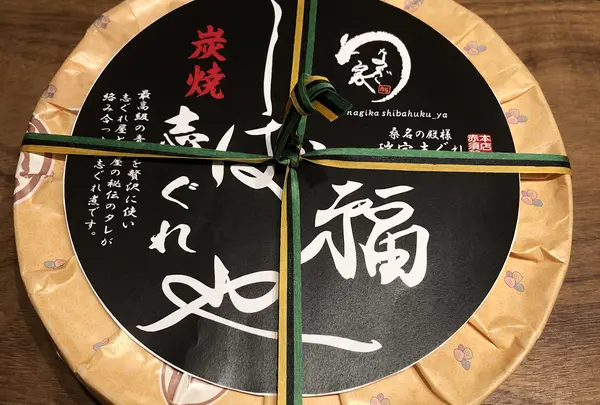 うなぎ家
nagika shibahuku_ya
しば福や
炭焼
志ぐれ
桑名の殿様
志ぐれ
本店
赤須
最高級の
を贅沢に使い
志ぐれ屋と
屋の秘伝のタレが
絡み合っ
志ぐれ煮です。